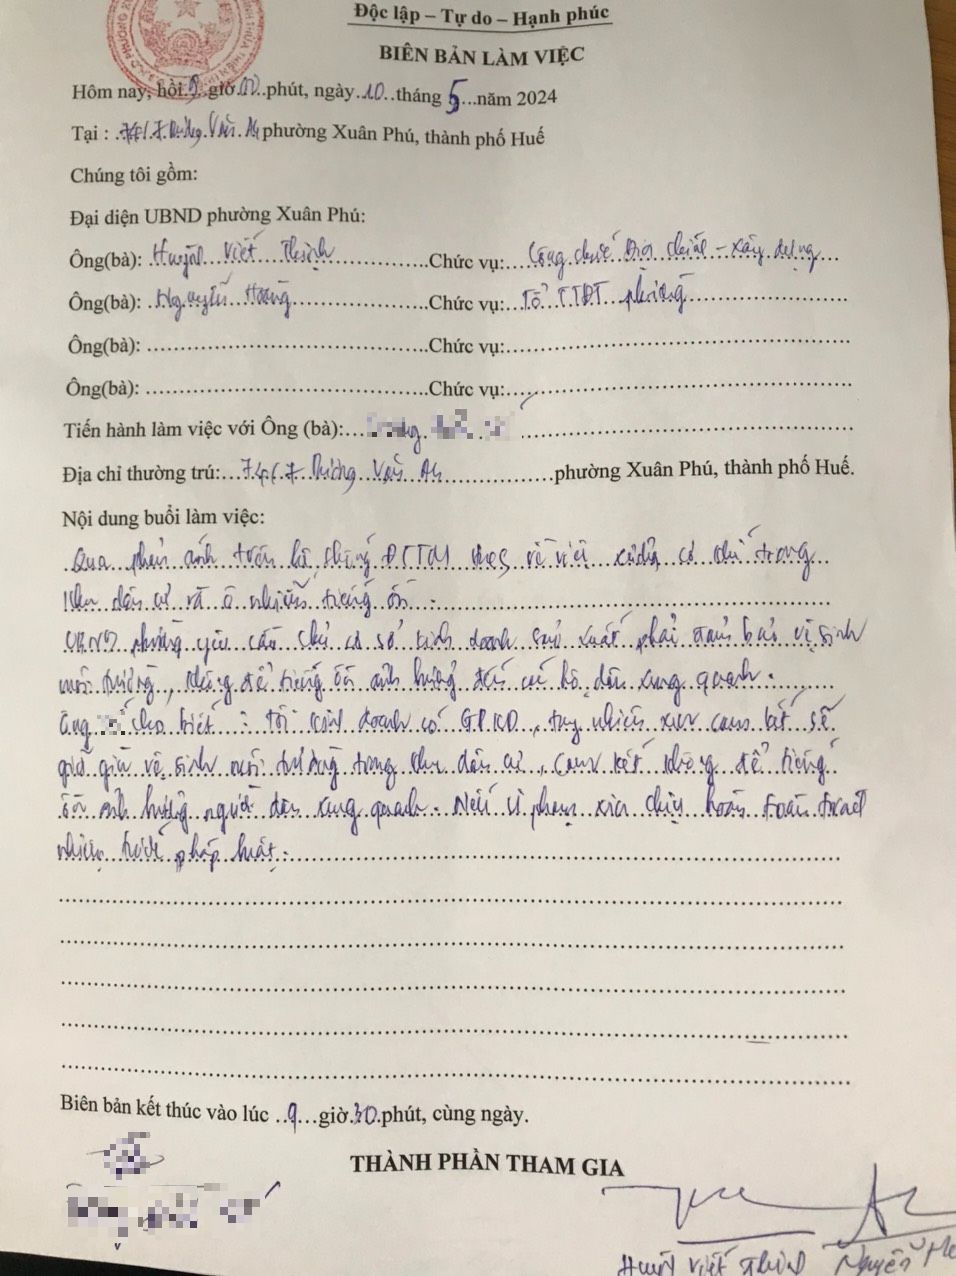 Độc lập – Tự do – Hạnh phúc
BIÊN BẢN LÀM VIỆC
Hôm nay, hồi 9 giờ 00 phút, ngày 10 tháng 5 năm 2024
Tại : Dương Văn An phường Xuân Phú, thành phố Huế
Chúng tôi gồm:
Đại diện UBND phường Xuân Phú:
Ông(bà): Huỳnh Viết Thịnh Chức vụ: Công chức Địa chính – Xây dựng
Ông(bà): Nguyễn Hoàng Chức vụ: Tổ TTĐT phường
Ông(bà): Chức vụ:
Ông(bà): Chức vụ:
Tiến hành làm việc với Ông (bà):
Địa chỉ thường trú: Dương Văn An phường Xuân Phú, thành phố Huế.
Nội dung buổi làm việc:
Qua phản ánh trên hệ thống ĐTTM về việc xưởng cơ khí trong
khu dân cư và ô nhiễm tiếng ồn.
UBND phường yêu cầu chủ cơ sở kinh doanh sản xuất phải đảm bảo vệ sinh
môi trường, không để tiếng ồn ảnh hưởng đến các hộ dân xung quanh.
Ông cho biết : tôi kinh doanh có GPKD, tuy nhiên xin cam kết sẽ
giữ gìn vệ sinh môi trường trong khu dân cư, cam kết không để tiếng
ồn ảnh hưởng người dân xung quanh. Nếu vi phạm xin chịu hoàn toàn trách
nhiệm trước pháp luật.
Biên bản kết thúc vào lúc 9 giờ 30 phút, cùng ngày.
THÀNH PHẦN THAM GIA
Huỳnh Viết Thịnh Nguyễn